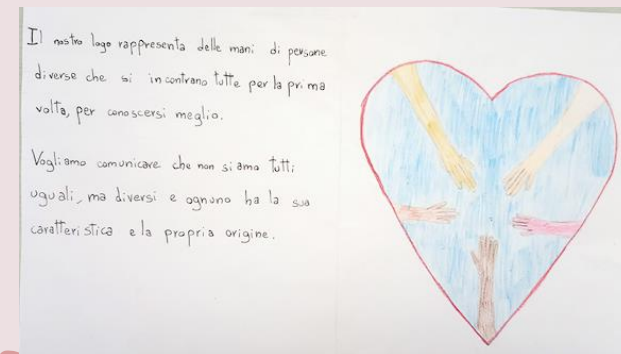 Il nostro logo rappresenta delle mani di persone
diverse che si incontrano tutte per la prima
volta, per conoscersi meglio.
Vogliamo comunicare che non siamo tutti
uguali, ma diversi e ognuno ha la sua
caratteristica e la propria origine.